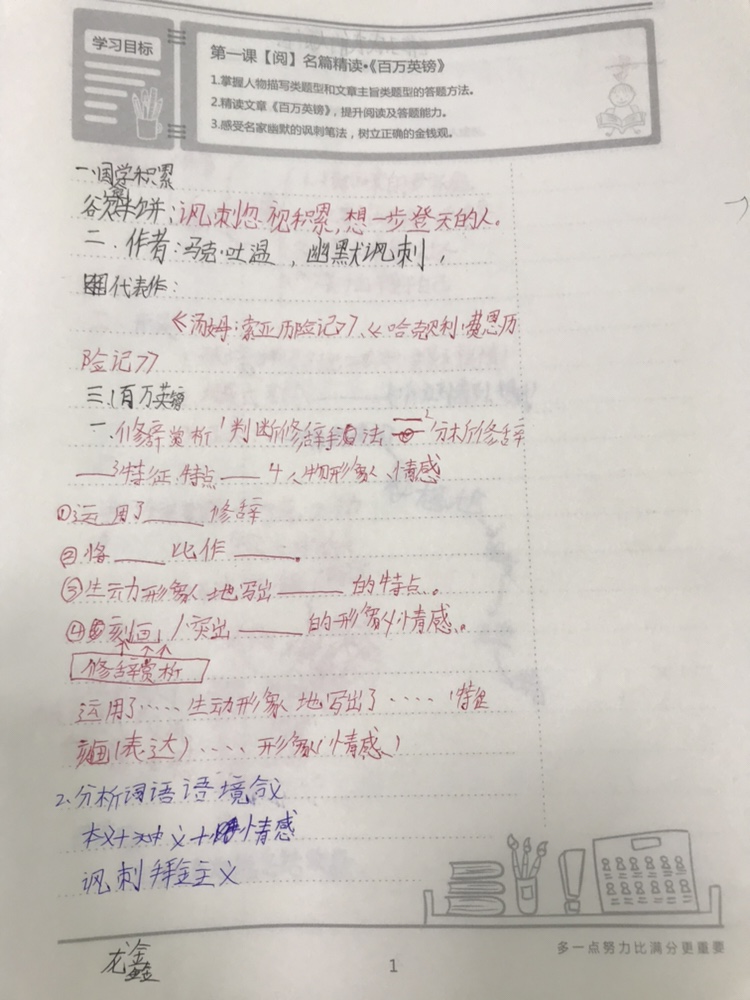 学习目标
第一课【阅】名篇精读·《百万英镑》
1.掌握人物描写类题型和文章主旨类题型的答题方法。
2.精读文章《百万英镑》，提升阅读及答题能力。
3.感受名家幽默的讽刺笔法，树立正确的金钱观。
一、国学积累
讽刺忽视积累，想一步登天的人。
二．作者：马克·吐温，幽默讽刺，
代表作：
《汤姆·索亚历险记》、《哈克贝利·费恩历
险记》
三、百万英镑
一、修辞赏析 1判断修辞手法 2分析修辞
——3特征、特点——4人物形象、情感
①运用了____修辞
②将____比作____。
③生动形象地写出____的特点。
④刻画/突出____的形象/情感。
修辞赏析
运用了····生动形象地写出了····特征
刻画(表达)····形象(情感)
2.分析词语语境含义
本义+ 义+情感
讽刺拜金主义
龙鑫
1
多一点努力比满分更重要